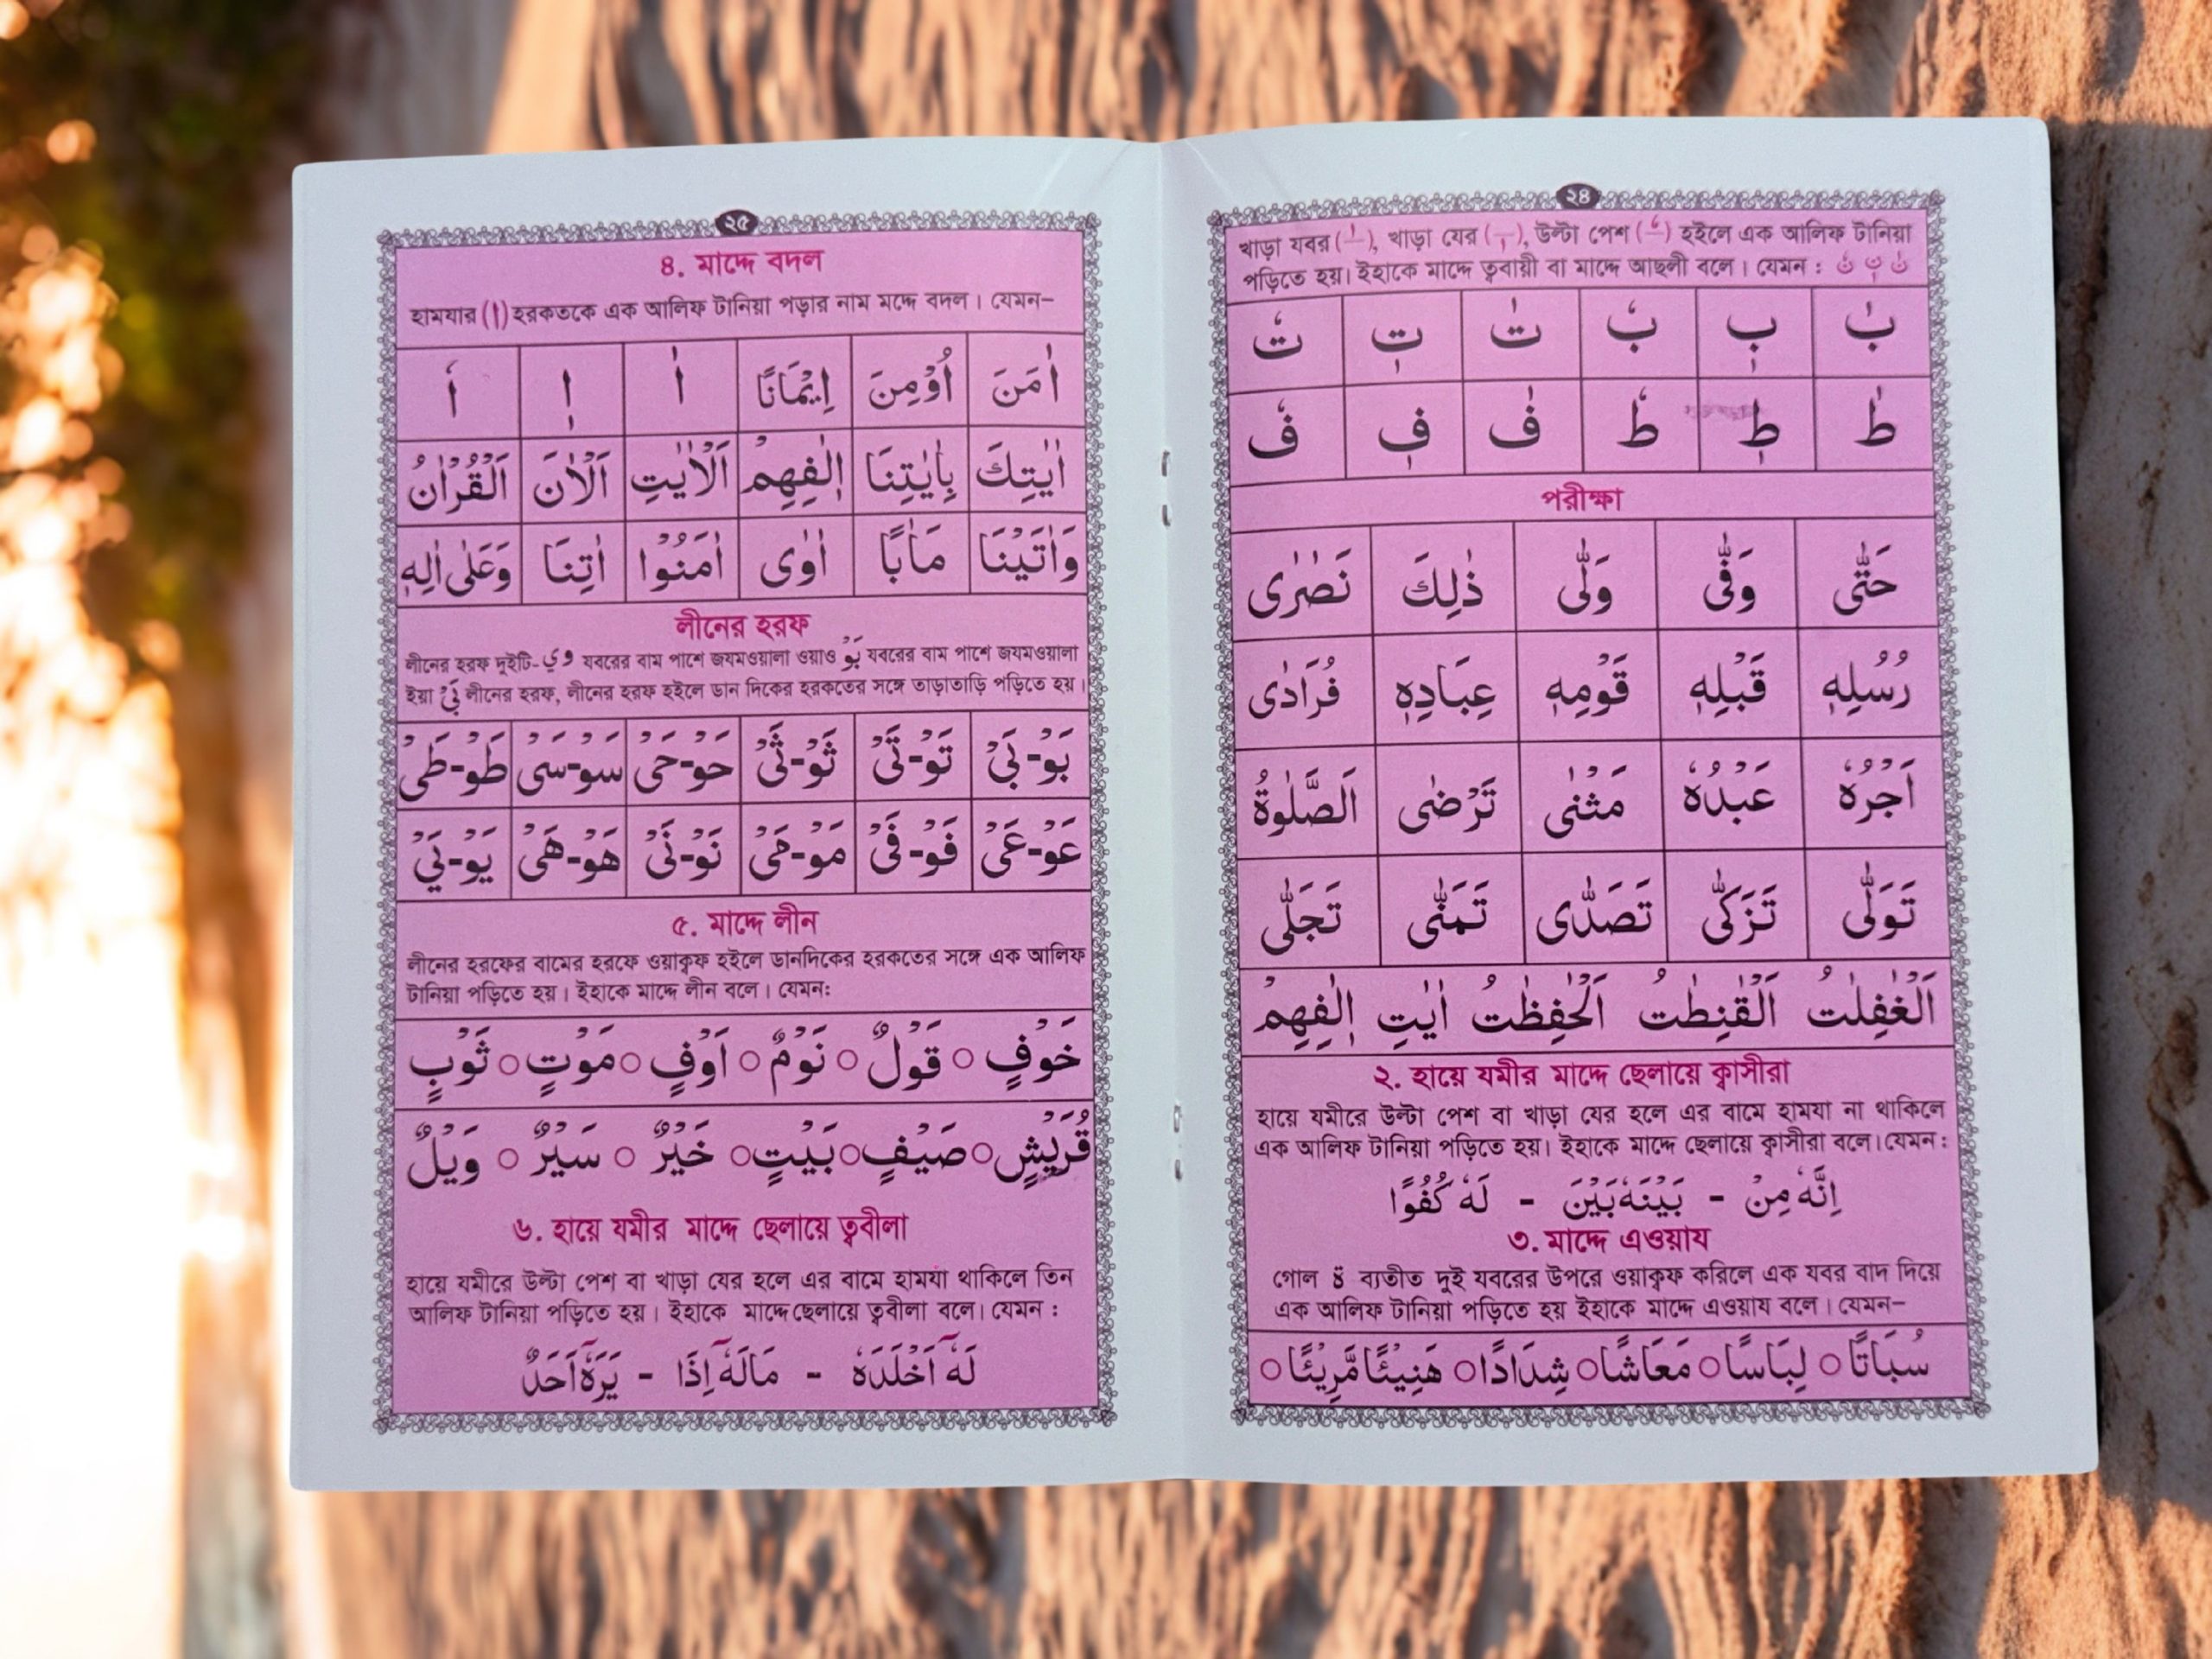 ২৪
খাড়া যবর (ـٰ), খাড়া যের (ـٖ), উল্টা পেশ (ـٗ) হইলে এক আলিফ টানিয়া
পড়িতে হয়। ইহাকে মাদ্দে ত্ববায়ী বা মাদ্দে আছলী বলে। যেমন :
بٰ بٖ بٗ تٰ تٖ تٗ
طٰ طٖ طٗ فٰ فٖ فٗ
পরীক্ষা
حَتّٰى وَفّٰى وَلّٰى ذٰلِكَ نَصٰرٰى
رُسُلِهٖ قَبْلِهٖ قَوْمِهٖ عِبَادِهٖ فُرَادٰى
اَجْرُهٗ عَبْدُهٗ مَثْنٰى تَرْضٰى اَلصَّلٰوةُ
تَوَلّٰى تَزَكّٰى تَصَدّٰى تَمَنّٰى تَجَلّٰى
اَلْغٰفِلٰتُ اَلْقٰنِطٰتُ اَلْحٰفِظٰتُ اٰيٰتِ اٖلٰفِهِمْ
২. হায়ে যমীর মাদ্দে ছেলায়ে ক্বাসীরা
হায়ে যমীরে উল্টা পেশ বা খাড়া যের হলে এর বামে হামযা না থাকিলে
এক আলিফ টানিয়া পড়িতে হয়। ইহাকে মাদ্দে ছেলায়ে ক্বাসীরা বলে। যেমন :
اِنَّهٗ مِنْ - بَيْنَهٗ بَيْنَ - لَهٗ كُفُوًا
৩. মাদ্দে এওয়ায
গোল ة ব্যতীত দুই যবরের উপরে ওয়াক্বফ করিলে এক যবর বাদ দিয়ে
এক আলিফ টানিয়া পড়িতে হয় ইহাকে মাদ্দে এওয়ায বলে। যেমন–
سُبَاتًا ○ لِبَاسًا ○ مَعَاشًا ○ شِدَادًا ○ هَنِيْئًا مَّرِيْئًا ○
২৫
৪. মাদ্দে বদল
হামযার (ا) হরকতকে এক আলিফ টানিয়া পড়ার নাম মদ্দে বদল। যেমন–
اٰمَنَ اُوْمِنَ اِيْمَانًا اٰ اٖ اٗ
اٰيٰتِكَ بِاٰيٰتِنَا اٖلٰفِهِمْ اَلْاٰيٰتِ اَلْاٰنَ اَلْقُرْاٰنُ
وَاٰتَيْنَا مَاٰبًا اٰوٰى اٰمَنُوْا اٰتِنَا وَعَلٰى اٰلِهٖ
লীনের হরফ
লীনের হরফ দুইটি- وي যবরের বাম পাশে জযমওয়ালা ওয়াও بَوْ যবরের বাম পাশে জযমওয়ালা
ইয়া بَيْ লীনের হরফ, লীনের হরফ হইলে ডান দিকের হরকতের সঙ্গে তাড়াতাড়ি পড়িতে হয়।
بَوْ-بَيْ تَوْ-تَىْ ثَوْ-ثَىْ حَوْ-حَىْ سَوْ-سَىْ طَوْ-طَىْ
عَوْ-عَىْ فَوْ-فَىْ مَوْ-مَىْ نَوْ-نَىْ هَوْ-هَىْ يَوْ-يَيْ
৫. মাদ্দে লীন
লীনের হরফের বামের হরফে ওয়াক্বফ হইলে ডানদিকের হরকতের সঙ্গে এক আলিফ
টানিয়া পড়িতে হয়। ইহাকে মাদ্দে লীন বলে। যেমন:
خَوْفٍ ○ قَوْلٌ ○ نَوْمٌ ○ اَوْفٍ ○ مَوْتٍ ○ ثَوْبٍ
قُرَيْشٍ ○ صَيْفٍ ○ بَيْتٍ ○ خَيْرٌ ○ سَيْرٌ ○ وَيْلٌ
৬. হায়ে যমীর মাদ্দে ছেলায়ে ত্ববীলা
হায়ে যমীরে উল্টা পেশ বা খাড়া যের হলে এর বামে হামযা থাকিলে তিন
আলিফ টানিয়া পড়িতে হয়। ইহাকে মাদ্দে ছেলায়ে ত্ববীলা বলে। যেমন :
لَهٗٓ اَخْلَدَهٗ - مَالَهٗٓ اِذَا - يَرَهٗٓ اَحَدٌ